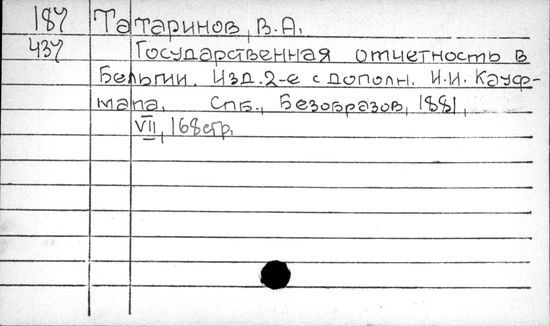 187 Татаринов, В.А.
437 Государственная отчетность в
Бельгии. Изд. 2-е с дополн. И.И. Кауф-
мана. Спб., Безобразов, 1881,
VII, 168 стр.